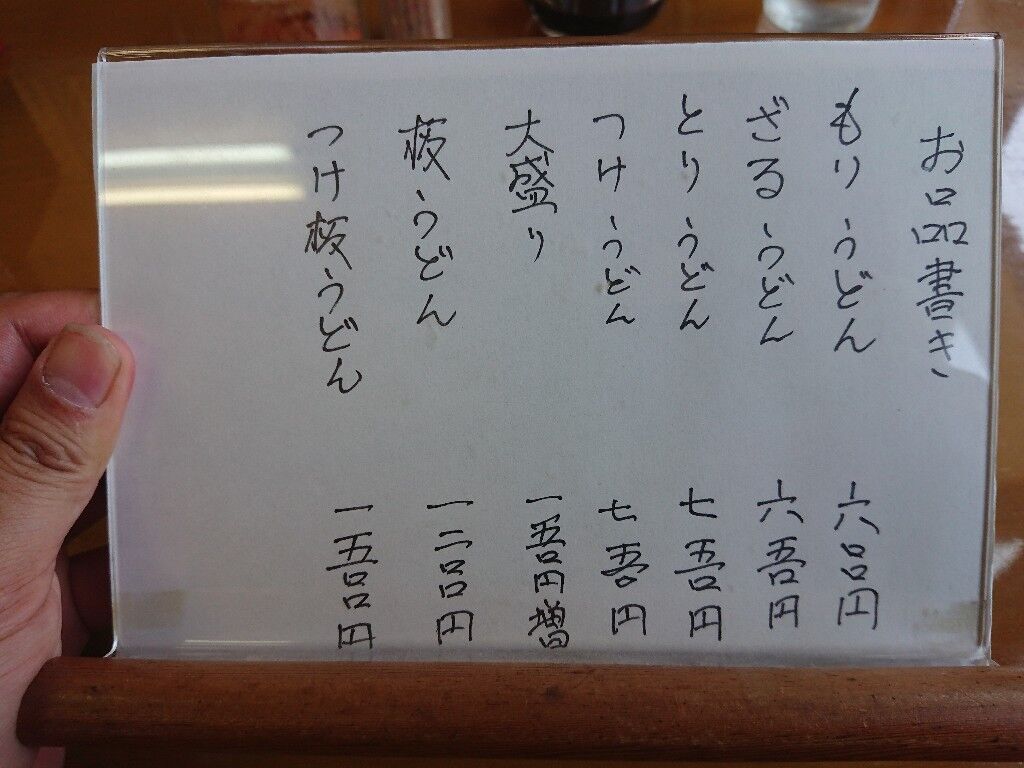 お品書き
もりうどん 六〇〇円
ざるうどん 六五〇円
とりうどん 七五〇円
つけうどん 七五〇円
大盛り 一五〇円増
板うどん 一二〇〇円
つけ板うどん 一五〇〇円